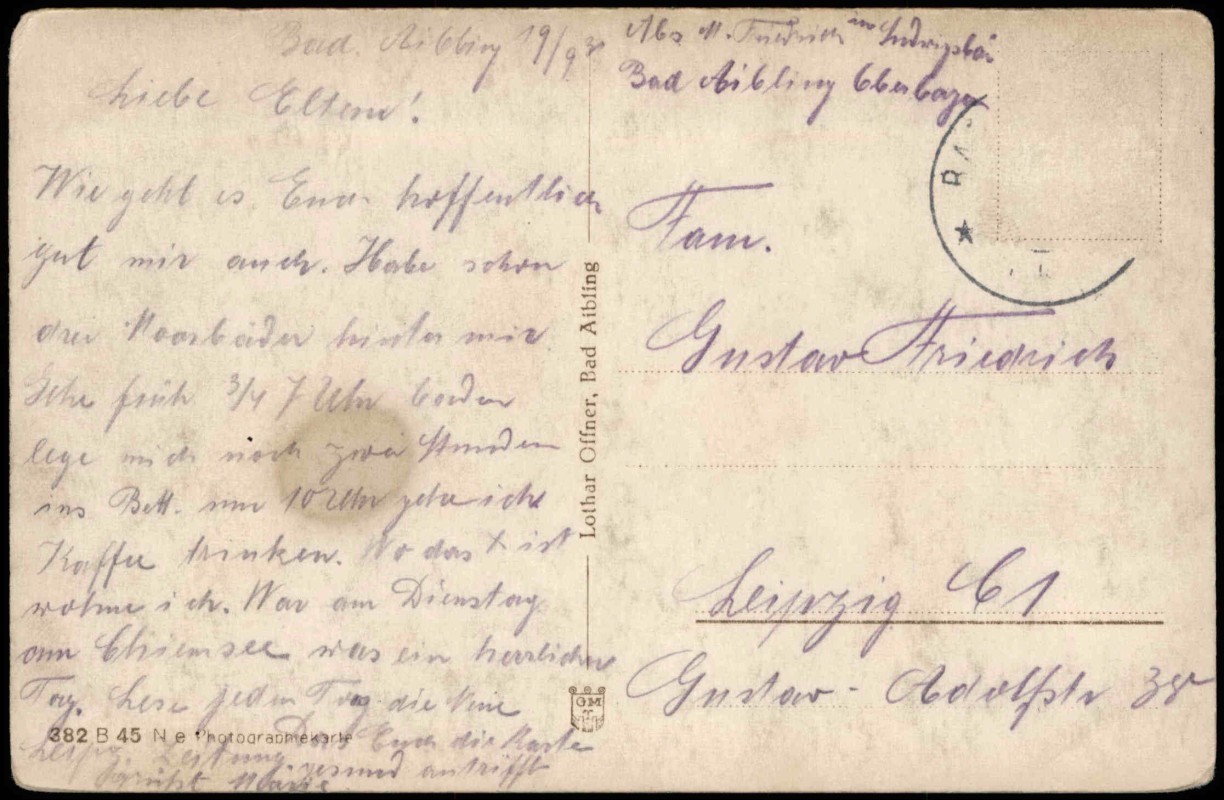 Bad. Aibling 19/9
Liebe Eltern!
Wie geht es Euch hoffentlich
gut mir auch. Habe schon
drei Moorbäder hinter mir.
Gehe früh 3/4 7 Uhr baden
lege mich noch zwei Stunden
ins Bett. um 10 Uhr gehe ich
Kaffee trinken. Wo das X ist
wohne ich. War am Dienstag
am Chiemsee was ein herrlicher
Tag. Lese jeden Tag die Neue
Leipz. Zeitung. Dass Euch die Karte
gesund antrifft
Grüßt
382 B 45 N e Photographiekarte
Lothar Offner, Bad Aibling
GM
Abs M. Friedrich
Bad Aibling Oberbay
BA
Fam.
Gustav Friedrich
Leipzig C1
Gustav-Adolfstr